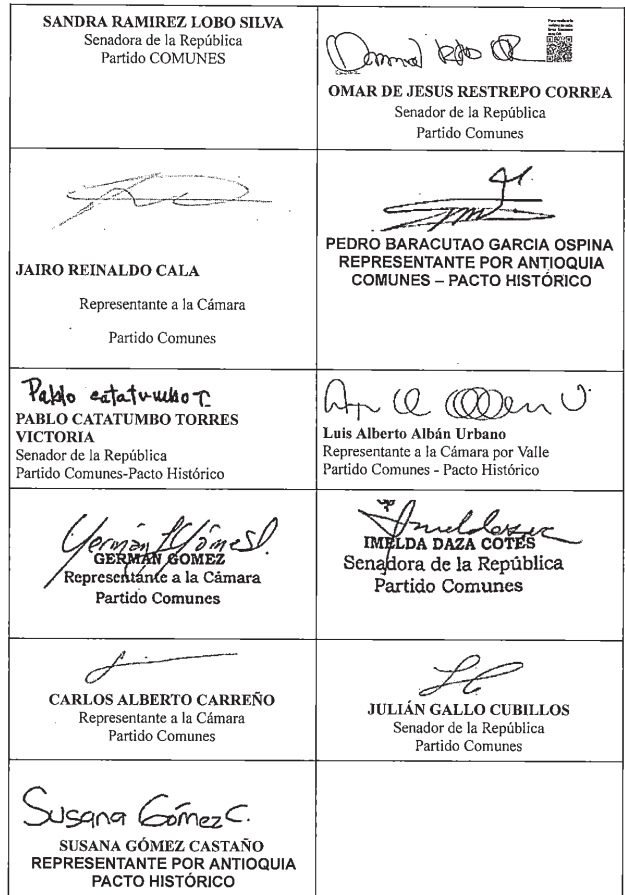 SANDRA RAMIREZ LOBO SILVA
Senadora de la República
Partido COMUNES
OMAR DE JESUS RESTREPO CORREA
Senador de la República
Partido Comunes
JAIRO REINALDO CALA
Representante a la Cámara
Partido Comunes
PEDRO BARACUTAO GARCIA OSPINA
REPRESENTANTE POR ANTIOQUIA
COMUNES – PACTO HISTÓRICO
Pablo catatumbo T.
PABLO CATATUMBO TORRES
VICTORIA
Senador de la República
Partido Comunes-Pacto Histórico
Luis Alberto Albán Urbano
Representante a la Cámara por Valle
Partido Comunes - Pacto Histórico
Germán Gómez
GERMAN GOMEZ
Representante a la Cámara
Partido Comunes
IMELDA DAZA COTES
Senadora de la República
Partido Comunes
CARLOS ALBERTO CARREÑO
Representante a la Cámara
Partido Comunes
JULIÁN GALLO CUBILLOS
Senador de la República
Partido Comunes
Susana Gómez C.
SUSANA GÓMEZ CASTAÑO
REPRESENTANTE POR ANTIOQUIA
PACTO HISTÓRICO